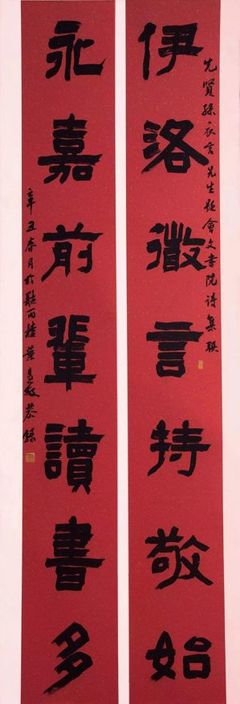 先賢孫衣言先生題會文書院詩集聯
伊洛微言持敬始
永嘉前輩讀書多
辛丑春月於聽雨樓黃恭錄